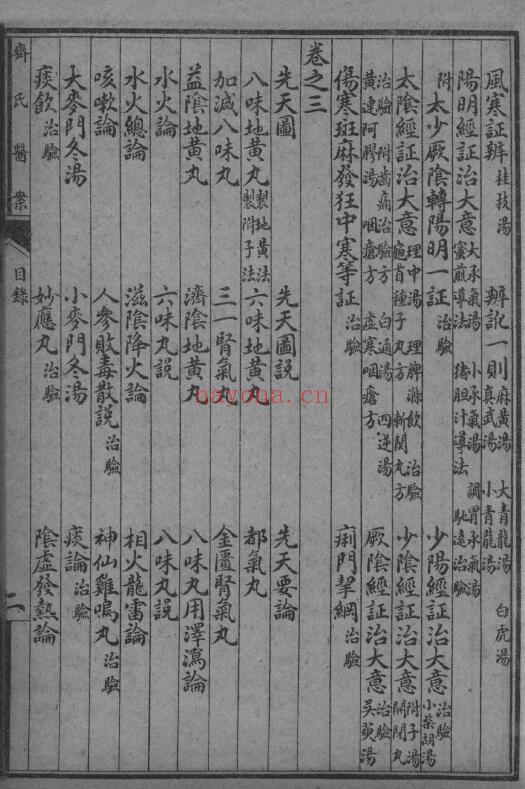 風寒証辨 桂枝湯 辨訛一則 麻黃湯 真武湯 大青龍湯 小青龍湯 白虎湯
陽明經証治大意 大承氣湯 小承氣湯 調胃承氣湯 蜜煎導法 猪胆汁導法 馳遠治驗
附 太少厥陰轉陽明一証 治驗 少陽經証治大意 治驗 小柴胡湯
太陰經証治大意 理中湯 理脾滌飲 治驗 龜首種子丸方 斬關丸方 少陰經証治大意 附子湯 開閉丸
治驗 附齒痛治驗方 白通湯 四逆湯 黃連阿膠湯 咽瘡方 虛寒咽瘡方 厥陰經証治大意 治驗 吳萸湯
傷寒斑麻發狂中寒等証 治驗 痢門挈綱 治驗
卷之三
先天圖 先天圖說 先天要論
八味地黃丸 製地黃法 製附子法 六味地黃丸 都氣丸
加減八味丸 三一腎氣丸 金匱腎氣丸
益陰地黃丸 濟陰地黃丸 八味丸用澤瀉論
水火論 六味丸說 八味丸說
水火總論 滋陰降火論 相火龍雷論
咳嗽論 人參敗毒散說 治驗 神仙雞鳴丸 治驗
大麥門冬湯 小麥門冬湯 痰論 治驗
痰飲 治驗 妙應丸 治驗 陰虛發熱論
齊氏醫案 目錄 二
hayona.cn